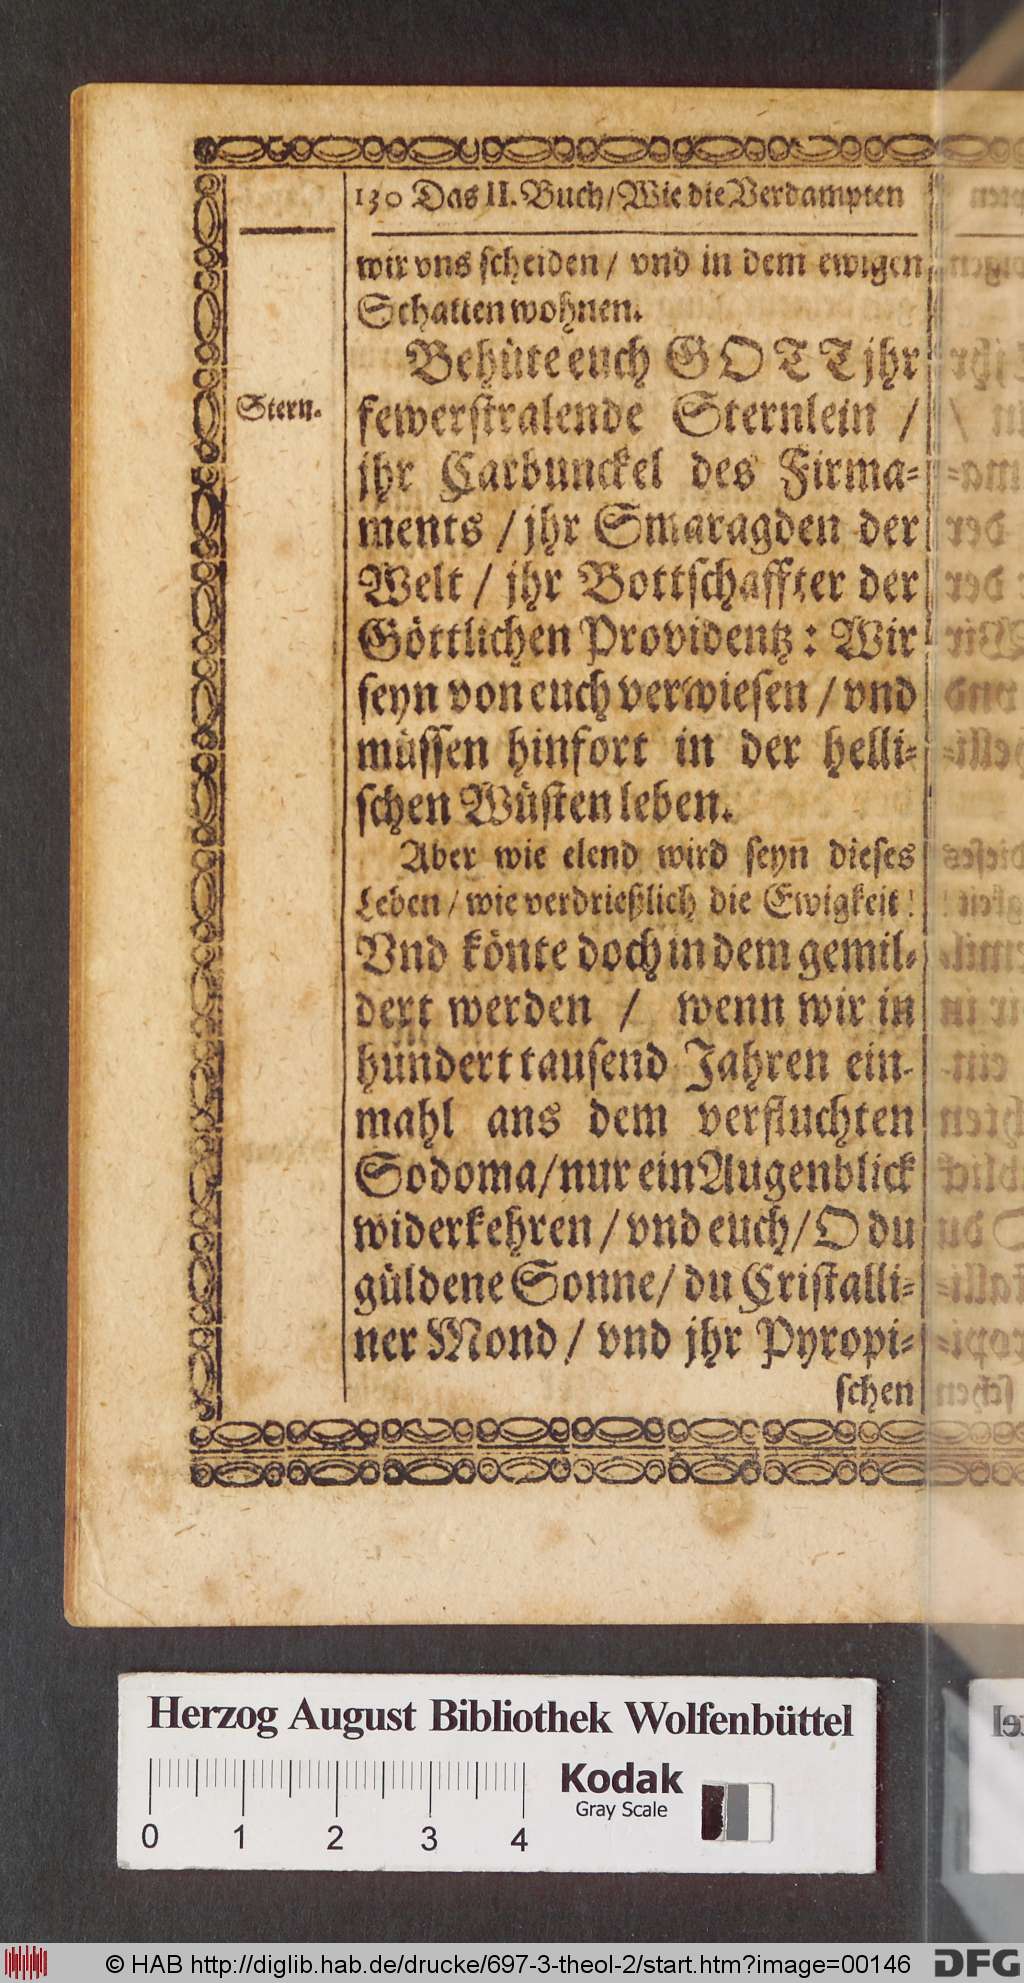 130 Das II. Buch/Wie die Verdampten
wir vns scheiden / vnd in dem ewigen
Schatten wohnen.
Behüte euch GOTT jhr
Stern.
fewerstralende Sternlein /
jhr Carbunckel des Firma-
ments / jhr Smaragden der
Welt / jhr Bottschaffter der
Göttlichen Providentz: Wir
seyn von euch verwiesen / vnd
müssen hinfort in der helli-
schen Wüsten leben.
Aber wie elend wird seyn dieses
Leben / wie verdrießlich die Ewigkeit!
Vnd könte doch in dem gemil-
dert werden / wenn wir in
hundert tausend Jahren ein-
mahl ans dem verfluchten
Sodoma/nur ein Augenblick
widerkehren / vnd euch/ O du
güldene Sonne/ du Cristalli-
ner Mond / vnd jhr Pyropi-
schen
Herzog August Bibliothek Wolfenbüttel
Kodak
Gray Scale
0 1 2 3 4
© HAB http://diglib.hab.de/drucke/697-3-theol-2/start.htm?image=00146
DFG